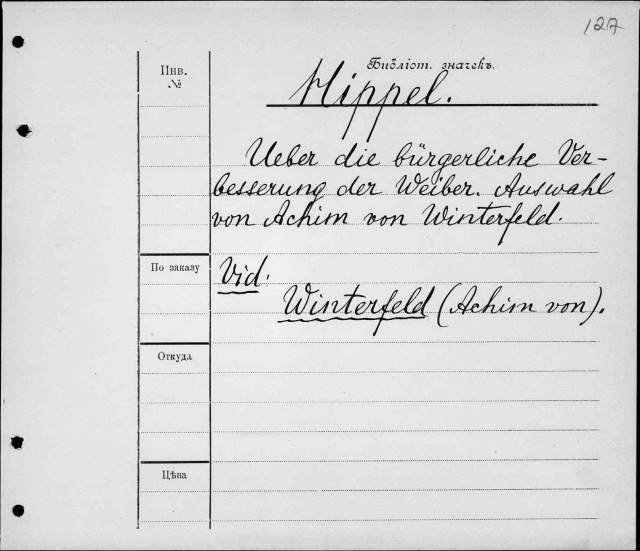 127
Инв.
№
Библіот. значекъ.
Hippel.
Ueber die bürgerliche Ver-
besserung der Weiber. Auswahl
von Achim von Winterfeld.
По заказу
Vid:
Winterfeld (Achim von).
Откуда
Цѣна